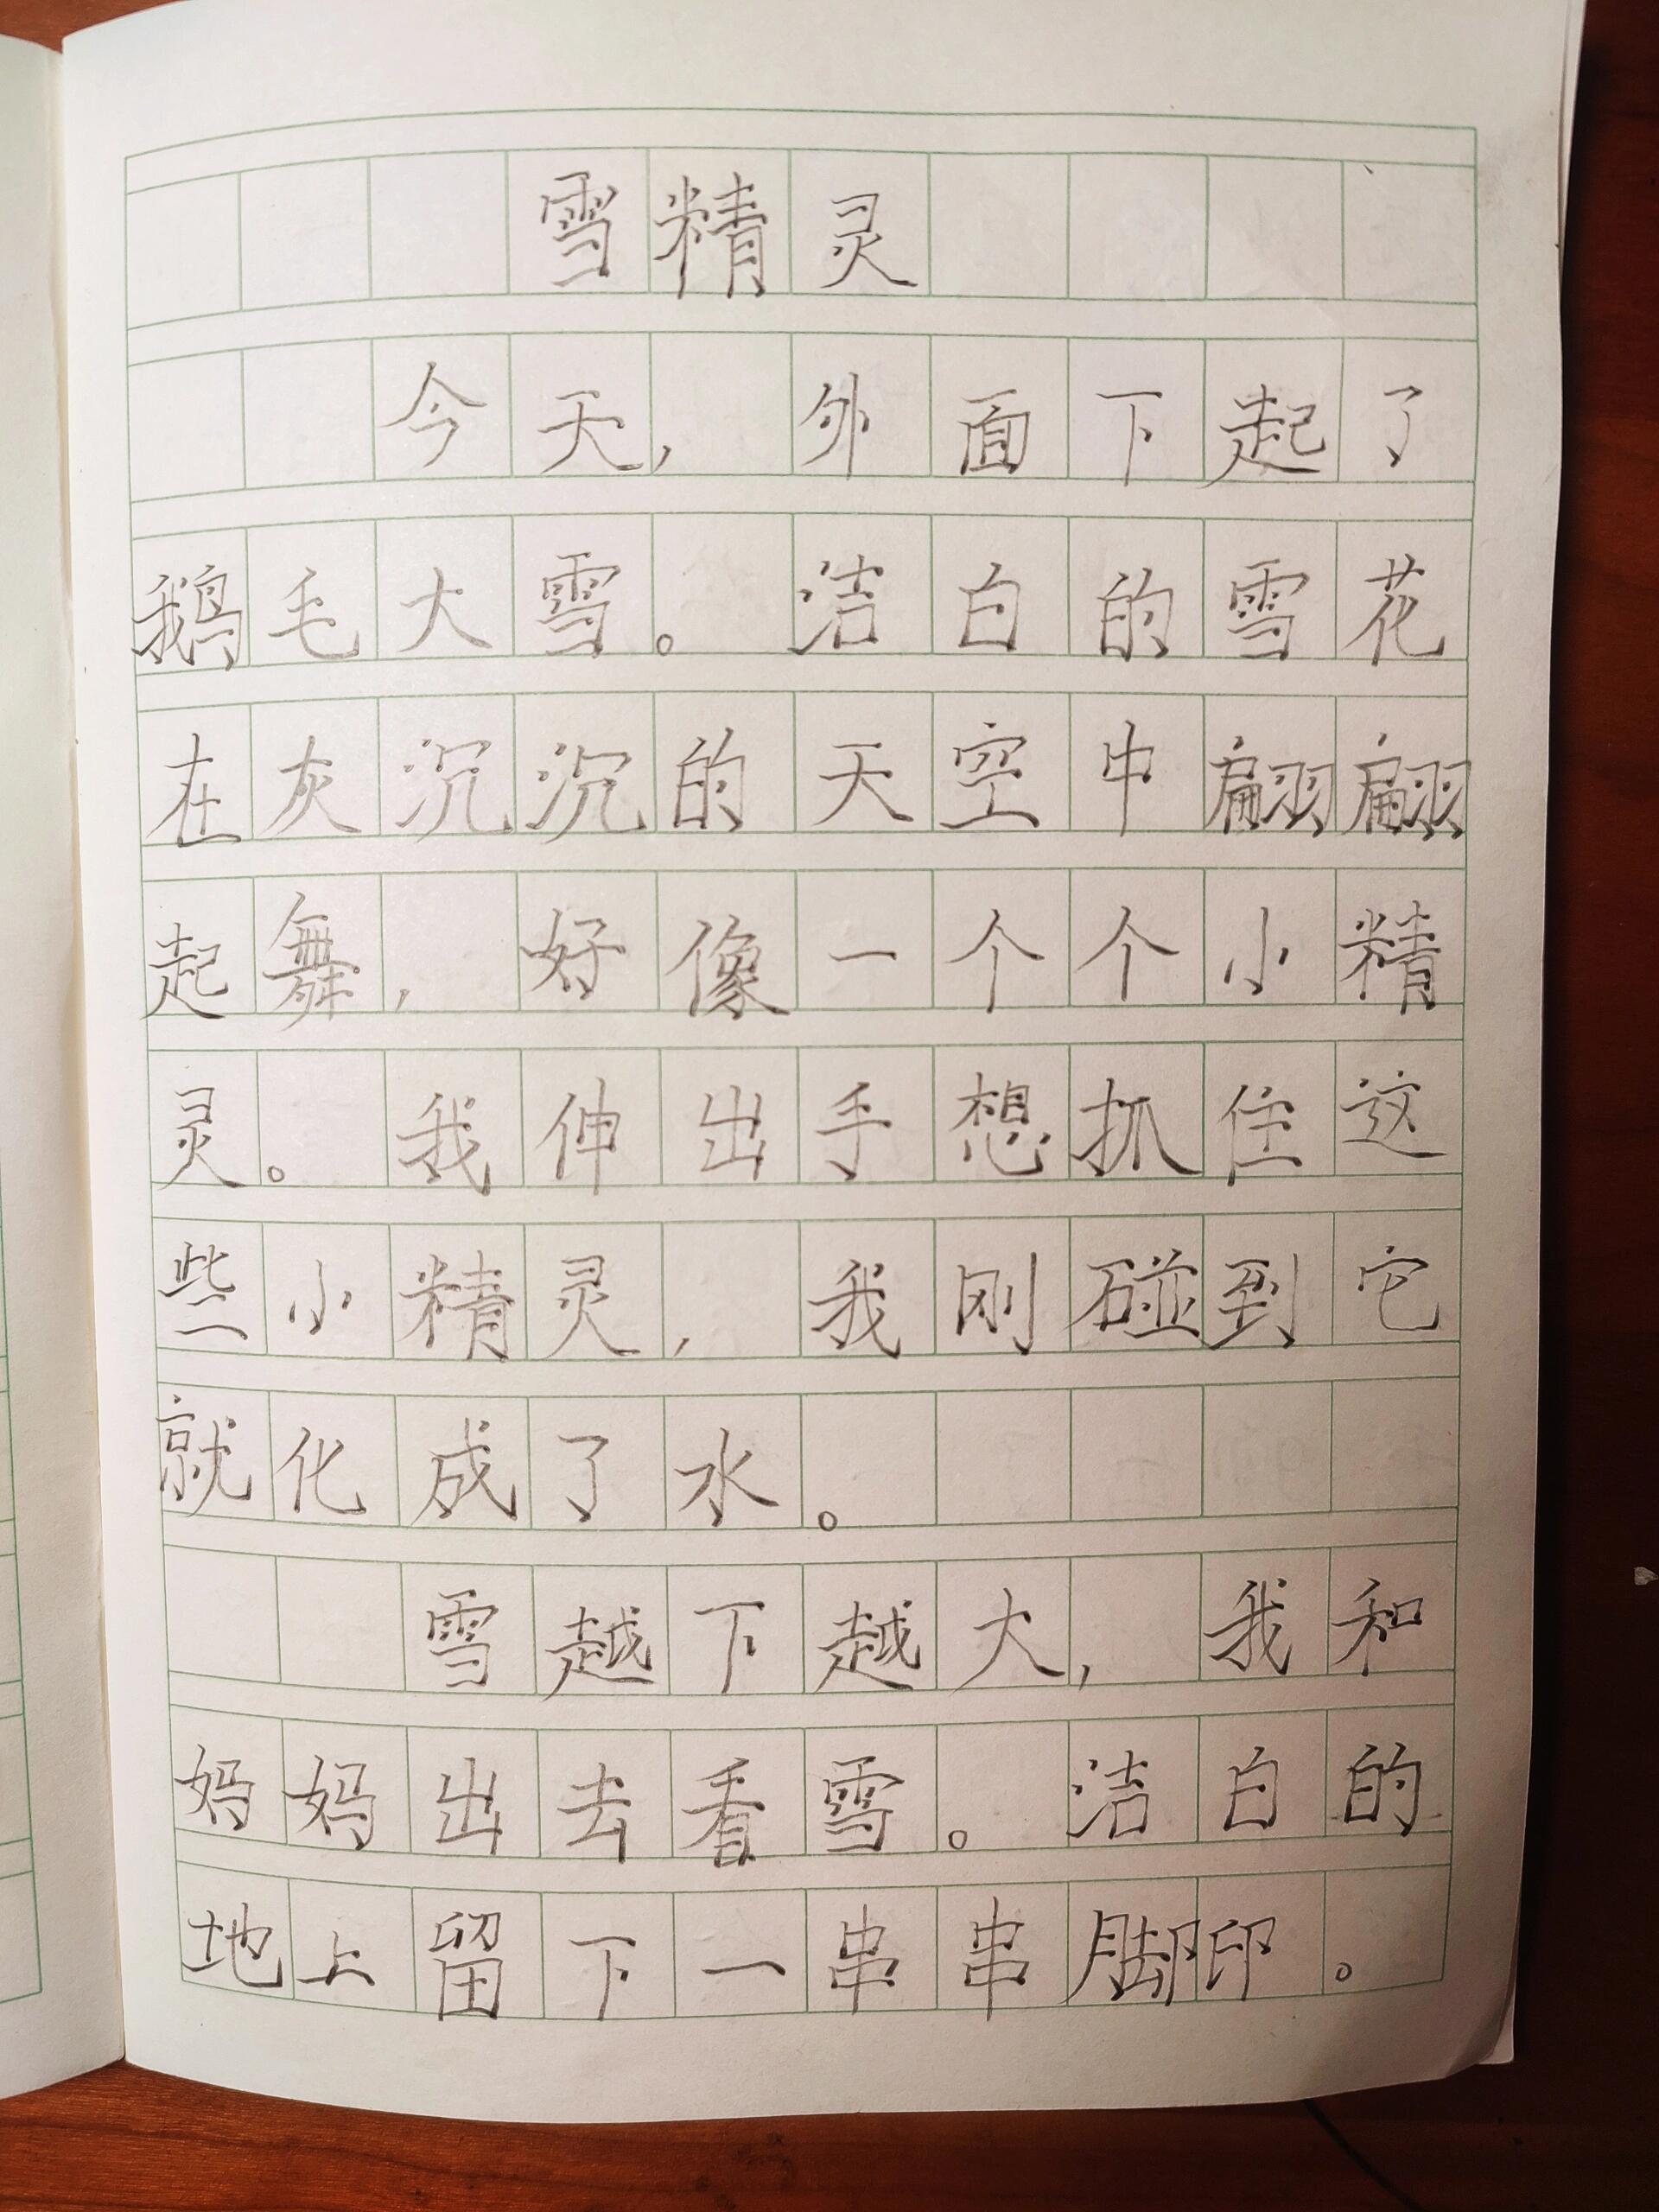 雪精灵
今天,外面下起了
鹅毛大雪。洁白的雪花
在灰沉沉的天空中翩翩
起舞,好像一个个小精
灵。我伸出手想抓住这
些小精灵,我刚碰到它
就化成了水。
雪越下越大,我和
妈妈出去看雪。洁白的
地上留下一串串脚印。